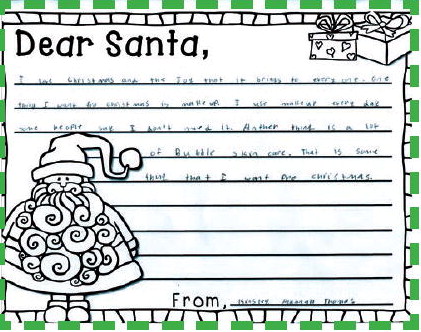 Dear Santa,
I love Christmas and the Joy that it brings to every one. One
thing I want for christmas is makeup. I use makeup every day
people say I don't need it. Another thing is a lot
of Bubble skin care. That is some
thing that I want for christmas.
From, Thomas